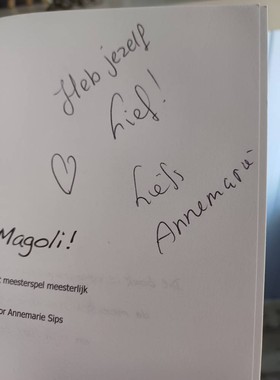 Heb jezelf
lief!
Liefs
Annemarie
Magoli!
meesterspel meesterlijk
or Annemarie Sips